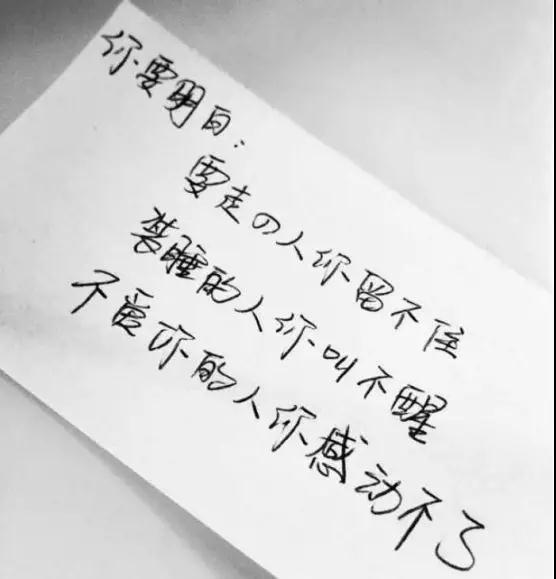 你要明白:
要走の人你留不住
装睡的人你叫不醒
不爱你的人你感动不了